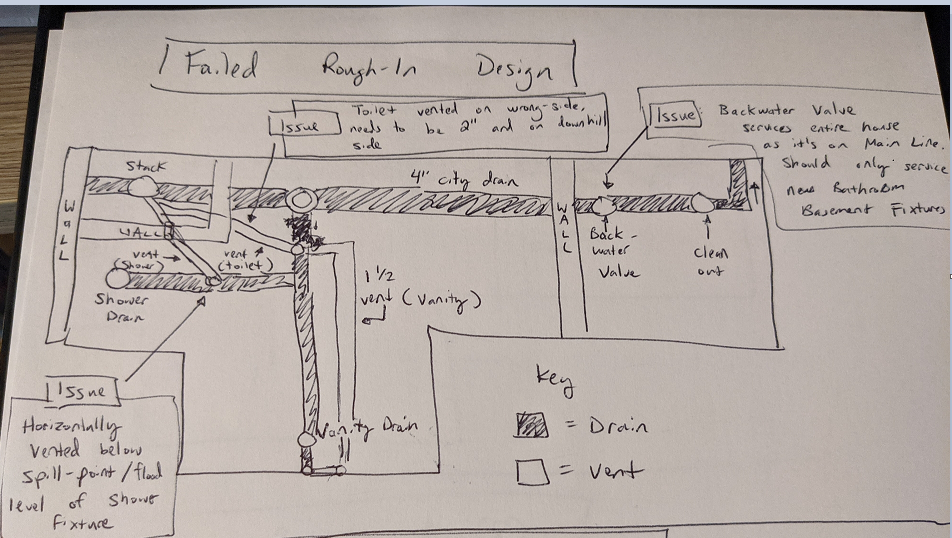 Failed Rough-In Design
Issue
Toilet vented on wrong-side,
needs to be 2" and on downhill
side
Issue:
Backwater Valve
services entire house
as it's on Main Line.
Should only service
new Bathroom
Basement Fixtures
Stack
4" city drain
WALL
WALL
WALL
vent
(shower)
vent
(toilet)
Shower
Drain
1 1/2
vent (Vanity)
Back-
water
Valve
Clean
out
Vanity Drain
Issue
Horizontally
vented below
spill-point/flood
level of Shower
Fixture
Key
= Drain
= Vent